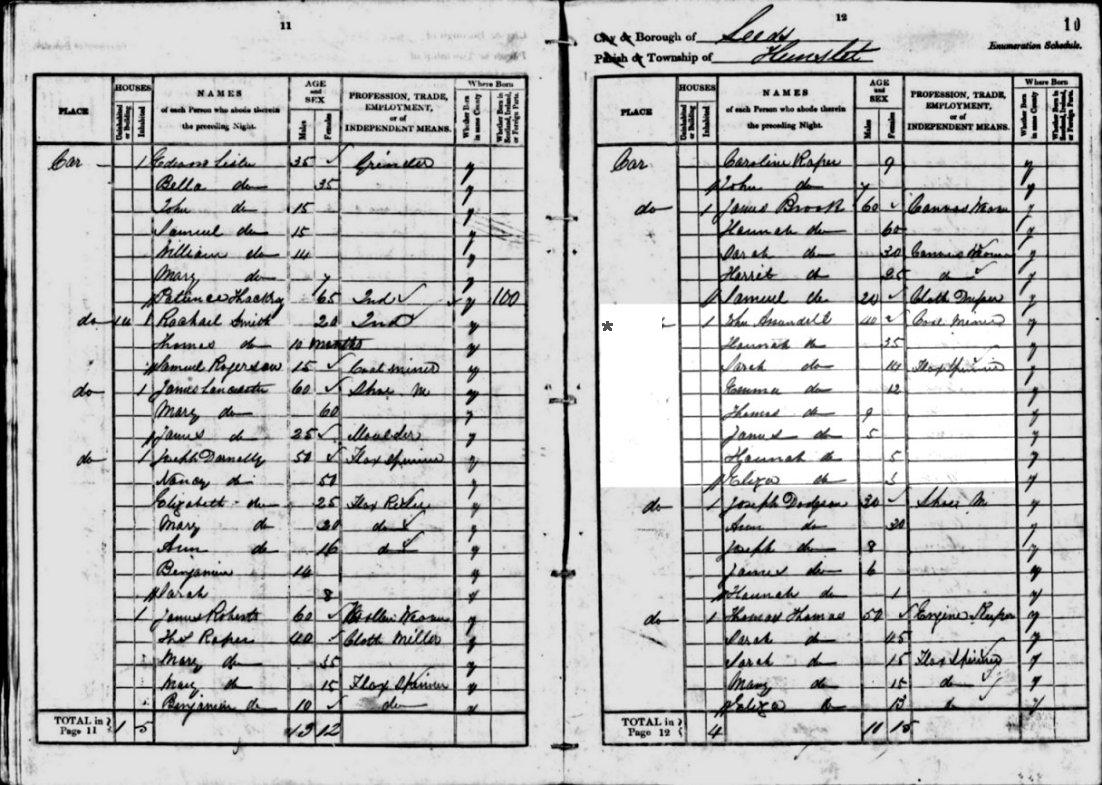 11
PLACE
HOUSES
Uninhabited or Building
Inhabited
NAMES
of each Person who abode therein the preceding Night.
AGE and SEX
Males
Females
PROFESSION, TRADE, EMPLOYMENT, or of INDEPENDENT MEANS.
Where Born
Whether Born in same County
Whether Born in Scotland, Ireland, or Foreign Parts.
Car 1 Lister 35 Grinder y
Bella do 35 y
John do 15 y
Samuel do 15 y
William do 14 y
Mary do y
Patience Thackray 65 Ind y 100
do 1 Rachael Smith 20 Ind y
Thomas do 10 months y
Samuel Rogerson 15 Coal miner y
do 1 James Lancaster 60 Shoe M y
Mary do 60 y
James do 25 Moulder y
do 1 Joseph 50 Flax Spinner y
Nancy do 50 y
Elizabeth do 25 Flax y
Mary do 20 do y
Ann do 16 do y
Benjamin 14 y
Sarah 8 y
1 James Roberts 60 Woollen Weaver y
Thos Raper 40 Cloth Miller y
Mary do 35 y
Mary do 15 Flax Spinner y
Benjamin do 10 do y
TOTAL in Page 11 1 5 13 12
12
10
City or Borough of Leeds
Parish or Township of Hunslet
Enumeration Schedule.
PLACE
HOUSES
Uninhabited or Building
Inhabited
NAMES
of each Person who abode therein the preceding Night.
AGE and SEX
Males
Females
PROFESSION, TRADE, EMPLOYMENT, or of INDEPENDENT MEANS.
Where Born
Whether Born in same County
Whether Born in Scotland, Ireland, or Foreign Parts.
Car Caroline Raper 9 y
John do y
do 1 James Brook 60 Canvas Weaver y
Hannah do 60 y
Sarah do 30 Canvas Weaver y
Harriet do 25 do y
Samuel do 20 Cloth Draper y
* 1 John Arundell 40 Coal Miner y
Hannah do 35 y
Sarah do 14 Flax Spinner y
Emma do 12 y
Thomas do 9 y
James do 5 y
Hannah do 5 y
Eliza do 3 y
do 1 Joseph Dodgson 30 Shoe M y
Ann do 30 y
Joseph do 8 y
James do 6 y
Hannah do 1 y
do 1 Thomas Thomas 50 Engine Keeper y
Sarah do 45 y
Sarah do 15 Flax Spinner y
Mary do 15 do y
Eliza do 13 do y
TOTAL in Page 12 4 10 15